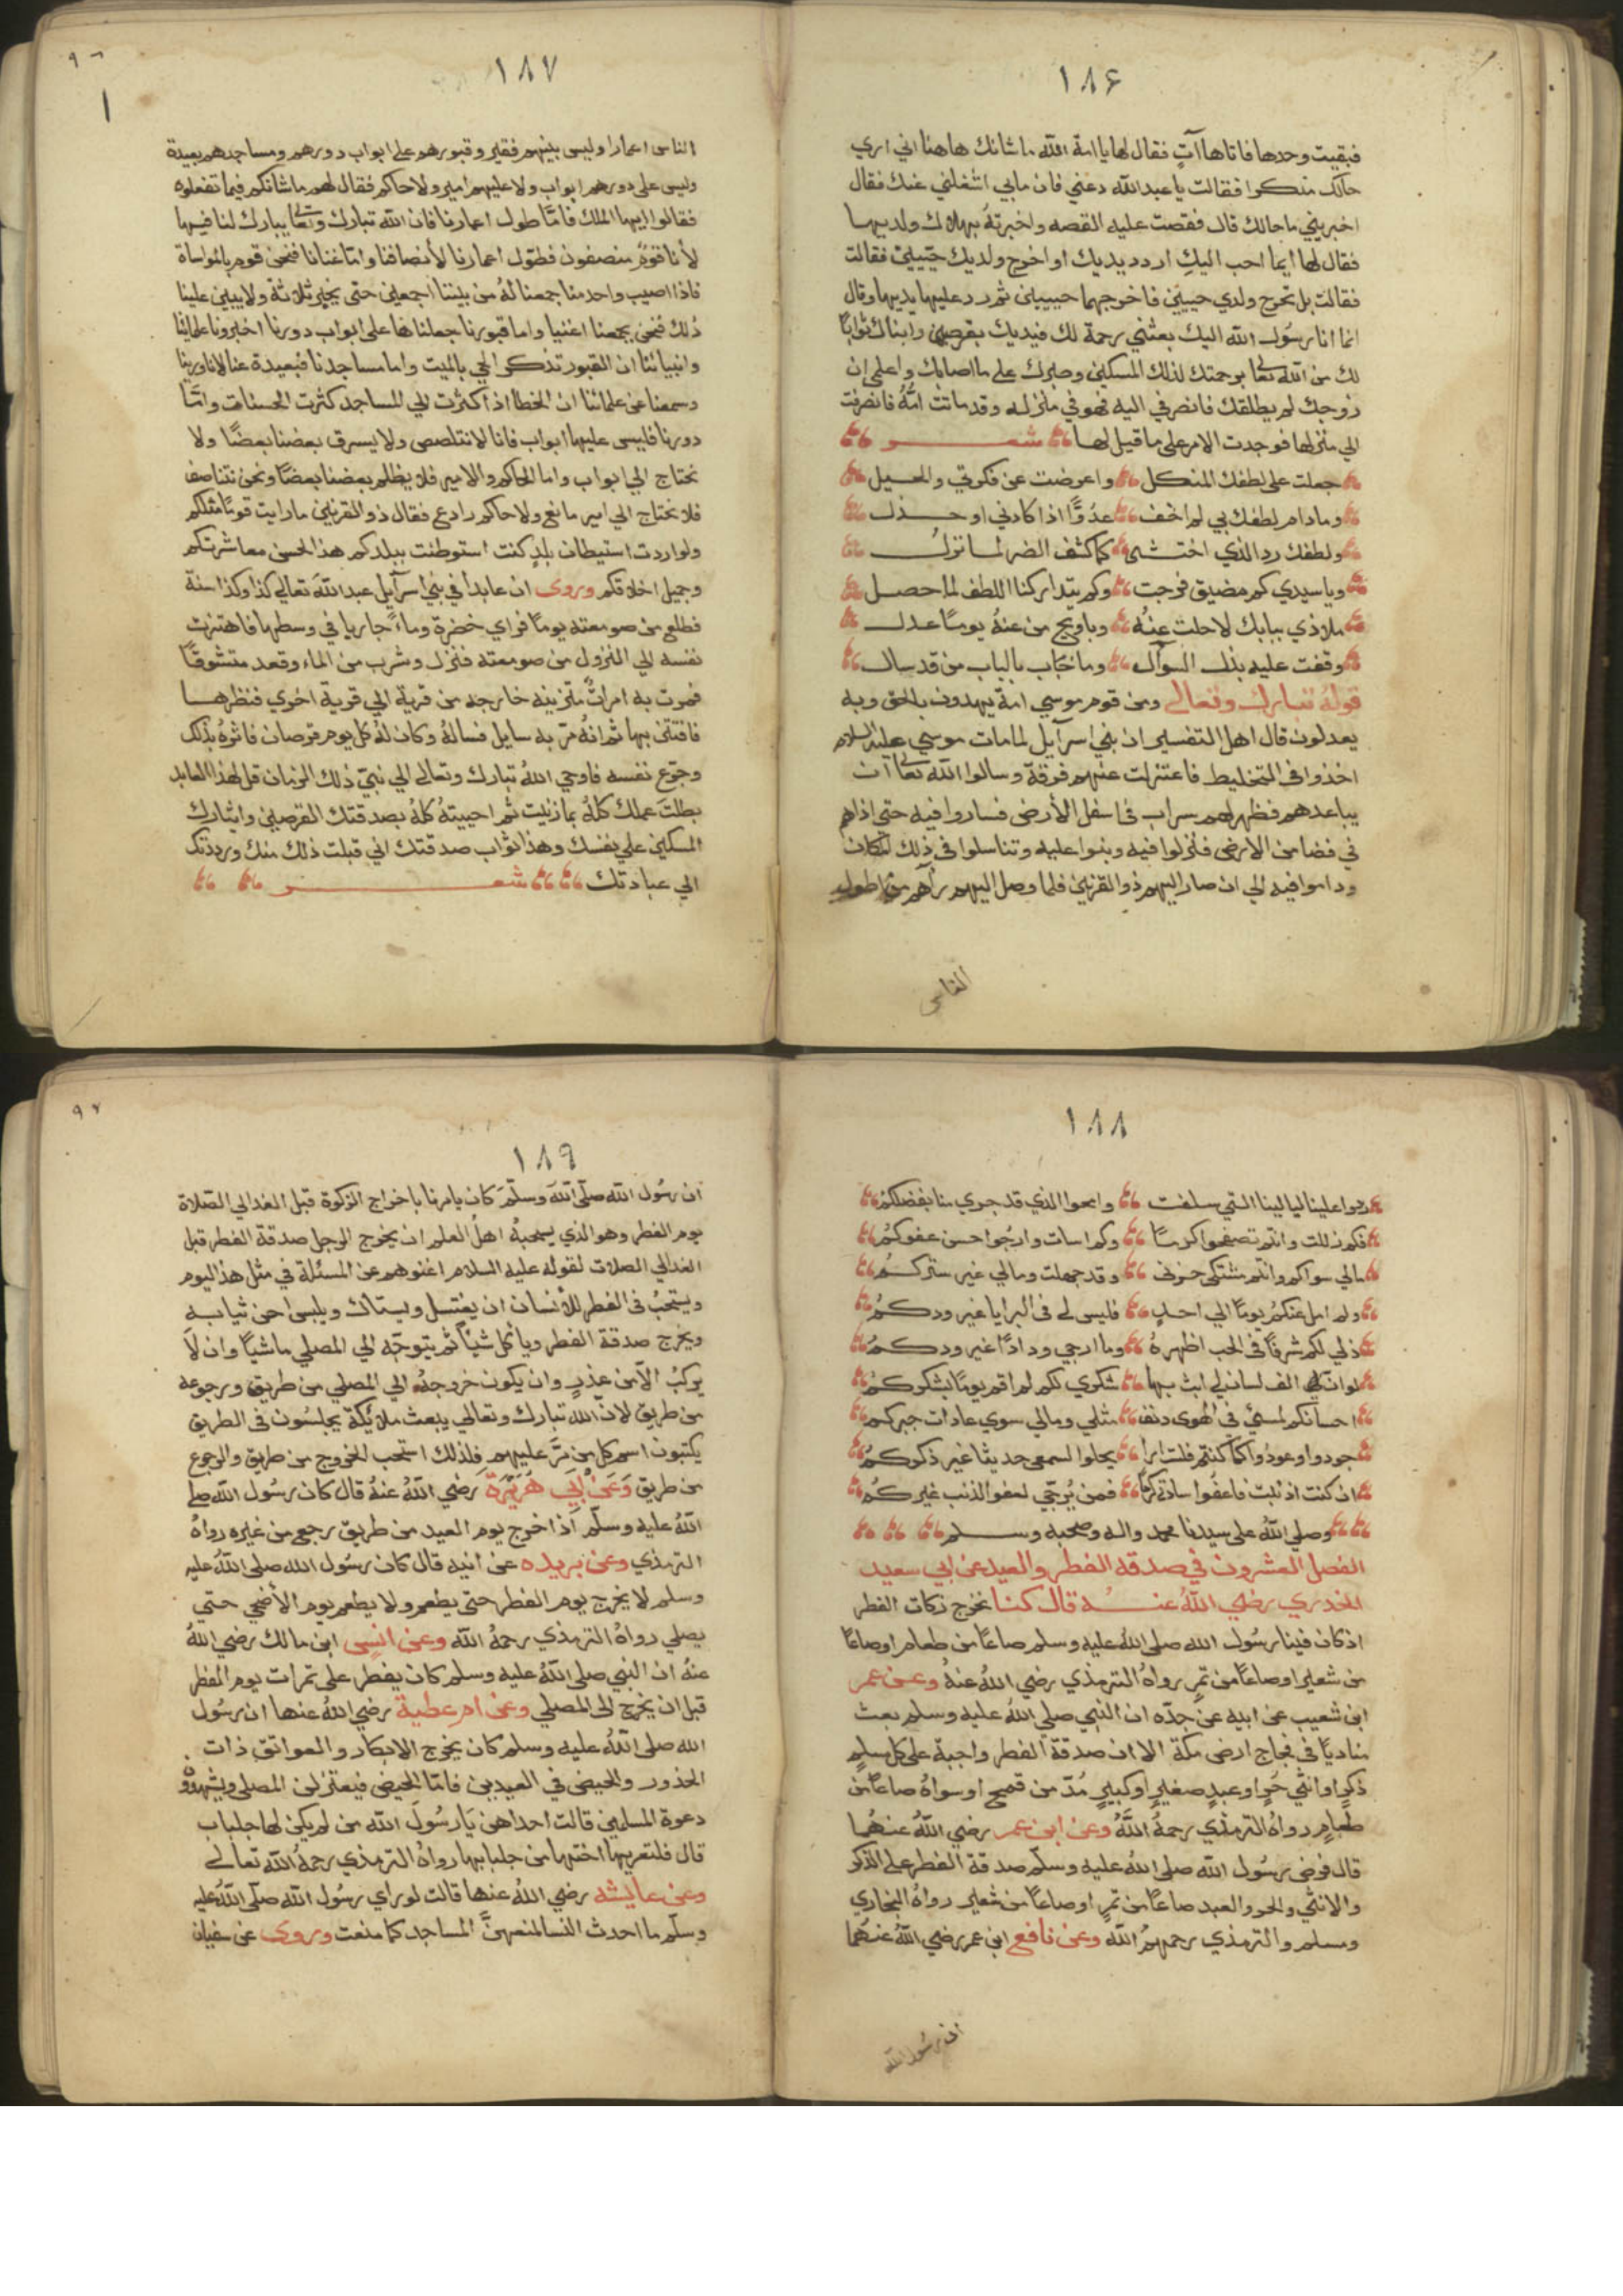 ١٨٦
فبقيت وحدها فاتاها آتٍ فقال لها يا امة الله ما شانك هاهنا اني اري
حالك منكرا فقالت يا عبد الله دعني فان ما بي اشغلني عنك فقال
اخبريني ما حالك قال فقصت عليه القصه واخبرتهُ بهلاك ولديها
فقال لها ايما احب اليكِ اردد يديك او اخرج ولديك حييين فقالت
فقالت بل تخرج ولدي حييين فاخرجهما حييين ثم رد عليها يديها وقال
انما انا رسُول الله اليك بعثني رحمة لك فيديك بقرصين وابناك ثوابًا
لك من الله تعالى برحمتك لذلك المسكين وصبرك على ما اصابك واعلمي ان
زوجك لم يطلقك فانصرفي اليه فهو في منزله وقد ماتت امُّهُ فانصرفت
الي منزلها فوجدت الامر على ما قيل لها شعر
جعلت على لطفك المتكل واعرضت عن فكرتي والحيل
وما دام لطفك بي لم اخف عدُوًّا اذا كادني او خذل
ولطفك رد الذي اختشى كما كشف الضر لما نزل
ويا سيدي كم مضيق فرجت وكم يتداركنا اللطف لما حصل
ملاذي ببابك لا حلت عنهُ وياويح من عنهُ يومًا عدل
وقفت عليه بذل السوآل وما خاب بالباب من قد سال
قولهُ تبارك وتعالى ومن قوم موسي امة يهدون بالحق وبه
يعدلون قال اهل التفسير ان بني اسرآيل لما مات موسي عليه السلام
اخذوا في التخليط فاعتزلت عنهم فرقة وسالوا الله تعالى ان
يباعدهم فظهر لهم سراب في اسفل الأرض فساروا فيه حتى اذاهم
في فضا من الارض فنزلوا فيه وبنوا عليه وتناسلوا في ذلك المكان
وداموا فيه الي ان صار اليهم ذو القرنين فلما وصل اليهم رآهم من اطول
الناس
١٨٧
الناس اعمارا وليس بينهم فقير وقبورهم على ابواب دورهم ومساجدهم بعيدة
وليس على دورهم ابواب ولا عليهم امير ولا حاكم فقال لهم ما شانكم فيما تفعلوه
فقالوا ايها الملك فامَّا طول اعمارنا فان الله تبارك وتعالى يبارك لنا فيها
لأنا قومٌ منصفون فطوّل اعمارنا لأنصافنا وامّا غنانا فنحن قوم بالمواساة
فاذا اصيب واحد منا جمعنا لهُ من بيننا اجمعين حتى يجبر ثلاثة ولا يبين علينا
ذلك فنحن يجمعنا اغنيا واما قبورنا جعلناها على ابواب دورنا اخبرونا علماينا
وانبيائنا ان القبور تذكر الحي بالميت واما مساجدنا فبعيدة عنا لانا روينا
وسمعنا عن علمائنا ان الخطا اذا كثرت الي المساجد كثرت الحسنات وامّا
دورنا فليس عليها ابواب فانا لا نتلصص ولا يسرق بعضنا بعضًا ولا
نحتاج الي ابواب واما الحاكم والامير فلا يظلم بعضنا بعضًا ونحن نتناصف
فلا نحتاج الي امير مانع ولا حاكم رادع فقال ذو القرنين ما رايت قومًا مثلكم
ولو اردت استيطان بلدٍ كنت استوطنت ببلدكم هذا لحسن معاشرتكم
وجميل اخلاقكم وروى ان عابدا في بني اسرآيل عبد الله تعالي كذا وكذا سنة
فطلع من صومعته يومًا فراي خضرة وماءً جاريا في وسطها فاهتزت
نفسه الي النزول من صومعته فنزل وشرب من الماء وقعد متشوقًا
فمرت به امراتٌ متزينه خارجه من قرية الي قرية اخري فنظرها
فافتتن بها ثم انهُ مرّ به سايل فسالهُ وكان لهُ كل يوم قرصان فاثرهُ بذلك
وجوّع نفسه فاوحي اللهُ تبارك وتعالى الي نبيّ ذلك الزمان قل لهذا العابد
بطلت عملك كلهُ بما زنيت ثم احييتهُ كلهُ بصدقتك القرصين وايثارك
المسكين علي نفسك وهذا ثواب صدقتك اني قبلت ذلك منك ورددتك
الي عبادتك شعر
١٨٨
ردوا علينا ليالينا التي سلفت وامحوا الذي قد جري منا بفضلكمُ
فكم زللت وانتم تصفحوا كرمًا وكم اسات وارجُوا حسن عفوكمُ
مالي سواكم وانتم مشتكى حزني وقد جهلت ومالي غير ستركمُ
ولم امل عنكمُ يومًا الي احدٍ فليس لي في البرايا غير ودكمُ
ذلي لكم شرفًا في الحب اظهرهُ وما ارجي ودادًا غير ودكمُ
لو ان لي الف لسان لي ابث بها شكري لكم لم اقم يومًا بشكركمُ
احسانكم لمسئ في الهوى دنف مثلي ومالي سوي عادات جبركم
جودوا وعودوا كما كنتم فلست ارا يحلوا لسمعي حديثا غير ذكركمُ
ان كنت اذنبت فاعفُوا سادتي كرمًا فمن يُرجّي لعفو الذنب غيركمُ
وصلي اللهُ على سيدنا محمد واله وصحبه وسلم
الفصل العشرون في صدقه الفطر والعيد عن ابي سعيد
الخدري رضي اللهُ عنهُ قال كنا نخرج زكات الفطر
اذ كان فينا رسُول الله صلى اللهُ عليه وسلم صاعًا من طعام او صاعًا
من شعير او صاعًا من تمرٍ رواهُ الترمذي رضي اللهُ عنهُ وعن عمر
ابن شعيب عن ابيه عن جدّه ان النبي صلي اللهُ عليه وسلم بعث
مناديًا في فجاج ارض مكة الا ان صدقة الفطر واجبة على كل مسلمٍ
ذكرٍ او انثي حُرٍ او عبدٍ صغيرٍ او كبيرٍ مُدّ من قمحٍ او سواهُ صاعًا من
طعامٍ رواهُ الترمذي رحمهُ اللَّهُ وعن ابن عمر رضي اللهُ عنهُما
قال فرض رسُول الله صلى اللهُ عليه وسلّم صدقة الفطر على الذكر
والانثي والحر والعبد صاعًا من تمرٍ او صاعًا من شعير رواهُ البخاري
ومسلم والترمذي رحمهمُ اللهُ وعن نافع ابن عمر رضي اللهُ عنهُما
ان رسُول الله
١٨٩
ان رسُول الله صلّى اللهَ وسلّمَ كان يامرنا باخراج الزكوة قبل الغدا الي الصّلاة
يوم الفطر وهو الذي يستحبهُ اهلُ العلم ان يخرج الرجل صدقة الفطر قبل
الغدا الي الصلات لقوله عليه السلام اغنوهم عن المسئلة في مثل هذا اليوم
ويستحبُ في الفطر للأنسان ان يغتسل ويستاك ويلبس احسن ثيابه
ويخرج صدقة الفطر وياكل شيئاً ثم يتوجّه الي المصلي ماشيًا وان لا
يركبُ الّا من عذرٍ وان يكون خروجهُ الي المصلي من طريق ورجوعه
من طريق لأنّ الله تبارك وتعالي يبعث ملائكة يجلسُون في الطريق
يكتبون اسم كل من مَرَّ عليهم فلذلك استحب الخروج من طريق والرجوع
من طريق وَعَنْ أَبِي هُرَيْرَةَ رضي اللهُ عنهُ قال كان رسُول الله صلى
اللهُ عليه وسلّم اذا خرج يوم العيد من طريق رجع من غيره رواهُ
الترمذي وعن بريده عن ابيه قال كان رسُول الله صلى اللهُ عليه
وسلم لا يخرج يوم الفطر حتى يطعم ولا يطعم يوم الأضحي حتي
يصلي رواهُ الترمذي رحمهُ الله وعن انسٍ ابن مالك رضي اللهُ
عنهُ ان النبي صلى اللهُ عليه وسلم كان يفطر على تمرات يوم الفطر
قبل ان يخرج الى المصلي وعن ام عطية رضي اللهُ عنها ان رسُول
الله صلى اللهُ عليه وسلم كان يخرج الابكار والعواتق ذات
الخدور والحيض في العيدين فامّا الحيض فيعتزلن المصلى ويشهدون
دعوة المسلمين قالت احداهن يَارسُولَ الله من لم يكن لها جلباب
قال فلتعريها اختها من جلبابها رواهُ الترمذي رحمهُ الله تعالى
وعن عايشه رضي اللهُ عنها قالت لو راي رسُول الله صلّى اللهُ عليه
وسلّم ما احدث النسا لمنعهنَّ المساجد كما منعت وروى عن سفيان